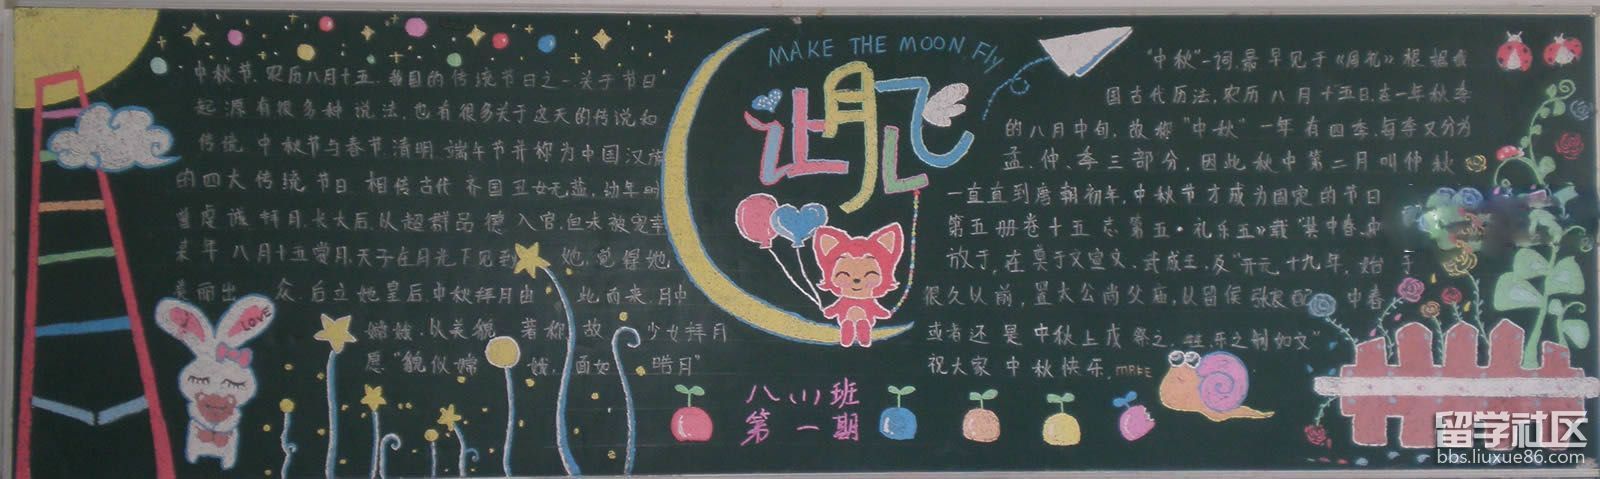 MAKE THE MOON Fly
让月儿飞
中秋节,农历八月十五,我国的传统节日之一关于节日
起源有很多种说法,也有很多关于这天的传说和
传统 中秋节与春节.清明.端午节并称为中国汉族
的四大传统节日 相传古代 齐国丑女无盐,幼年时
曾虔诚拜月,长大后,以超群品德入宫,但未被宠幸
某年八月十五赏月,天子在月光下见到她,觉得她
美丽出 众,后立她皇后,中秋拜月由 此而来,月中
嫦娥,以美貌 著称,故 少女拜月
愿"貌似嫦 娥,面如 皓月"
LOVE
"中秋"一词,最早见于《周礼》根据我
国古代历法,农历八月十五日,在一年秋季
的八月中旬,故称"中秋"一年有四季,每季又分为
孟、仲、季三部分,因此秋中第二月叫仲秋
一直直到唐朝初年,中秋节才成为固定的节日
第五册卷十五志第五·礼乐五》载"其中春、中
放于,在奠于文宣文、武成王,及"开元十九年,始于
很久以前,置太公尚父庙,以留侯张良配, 中春
或者还是中秋上戊祭之,牲.乐之制如文"
祝大家中秋快乐. MAKE
八(1)班
第一期
留学社区
bbs.liuxue86.com